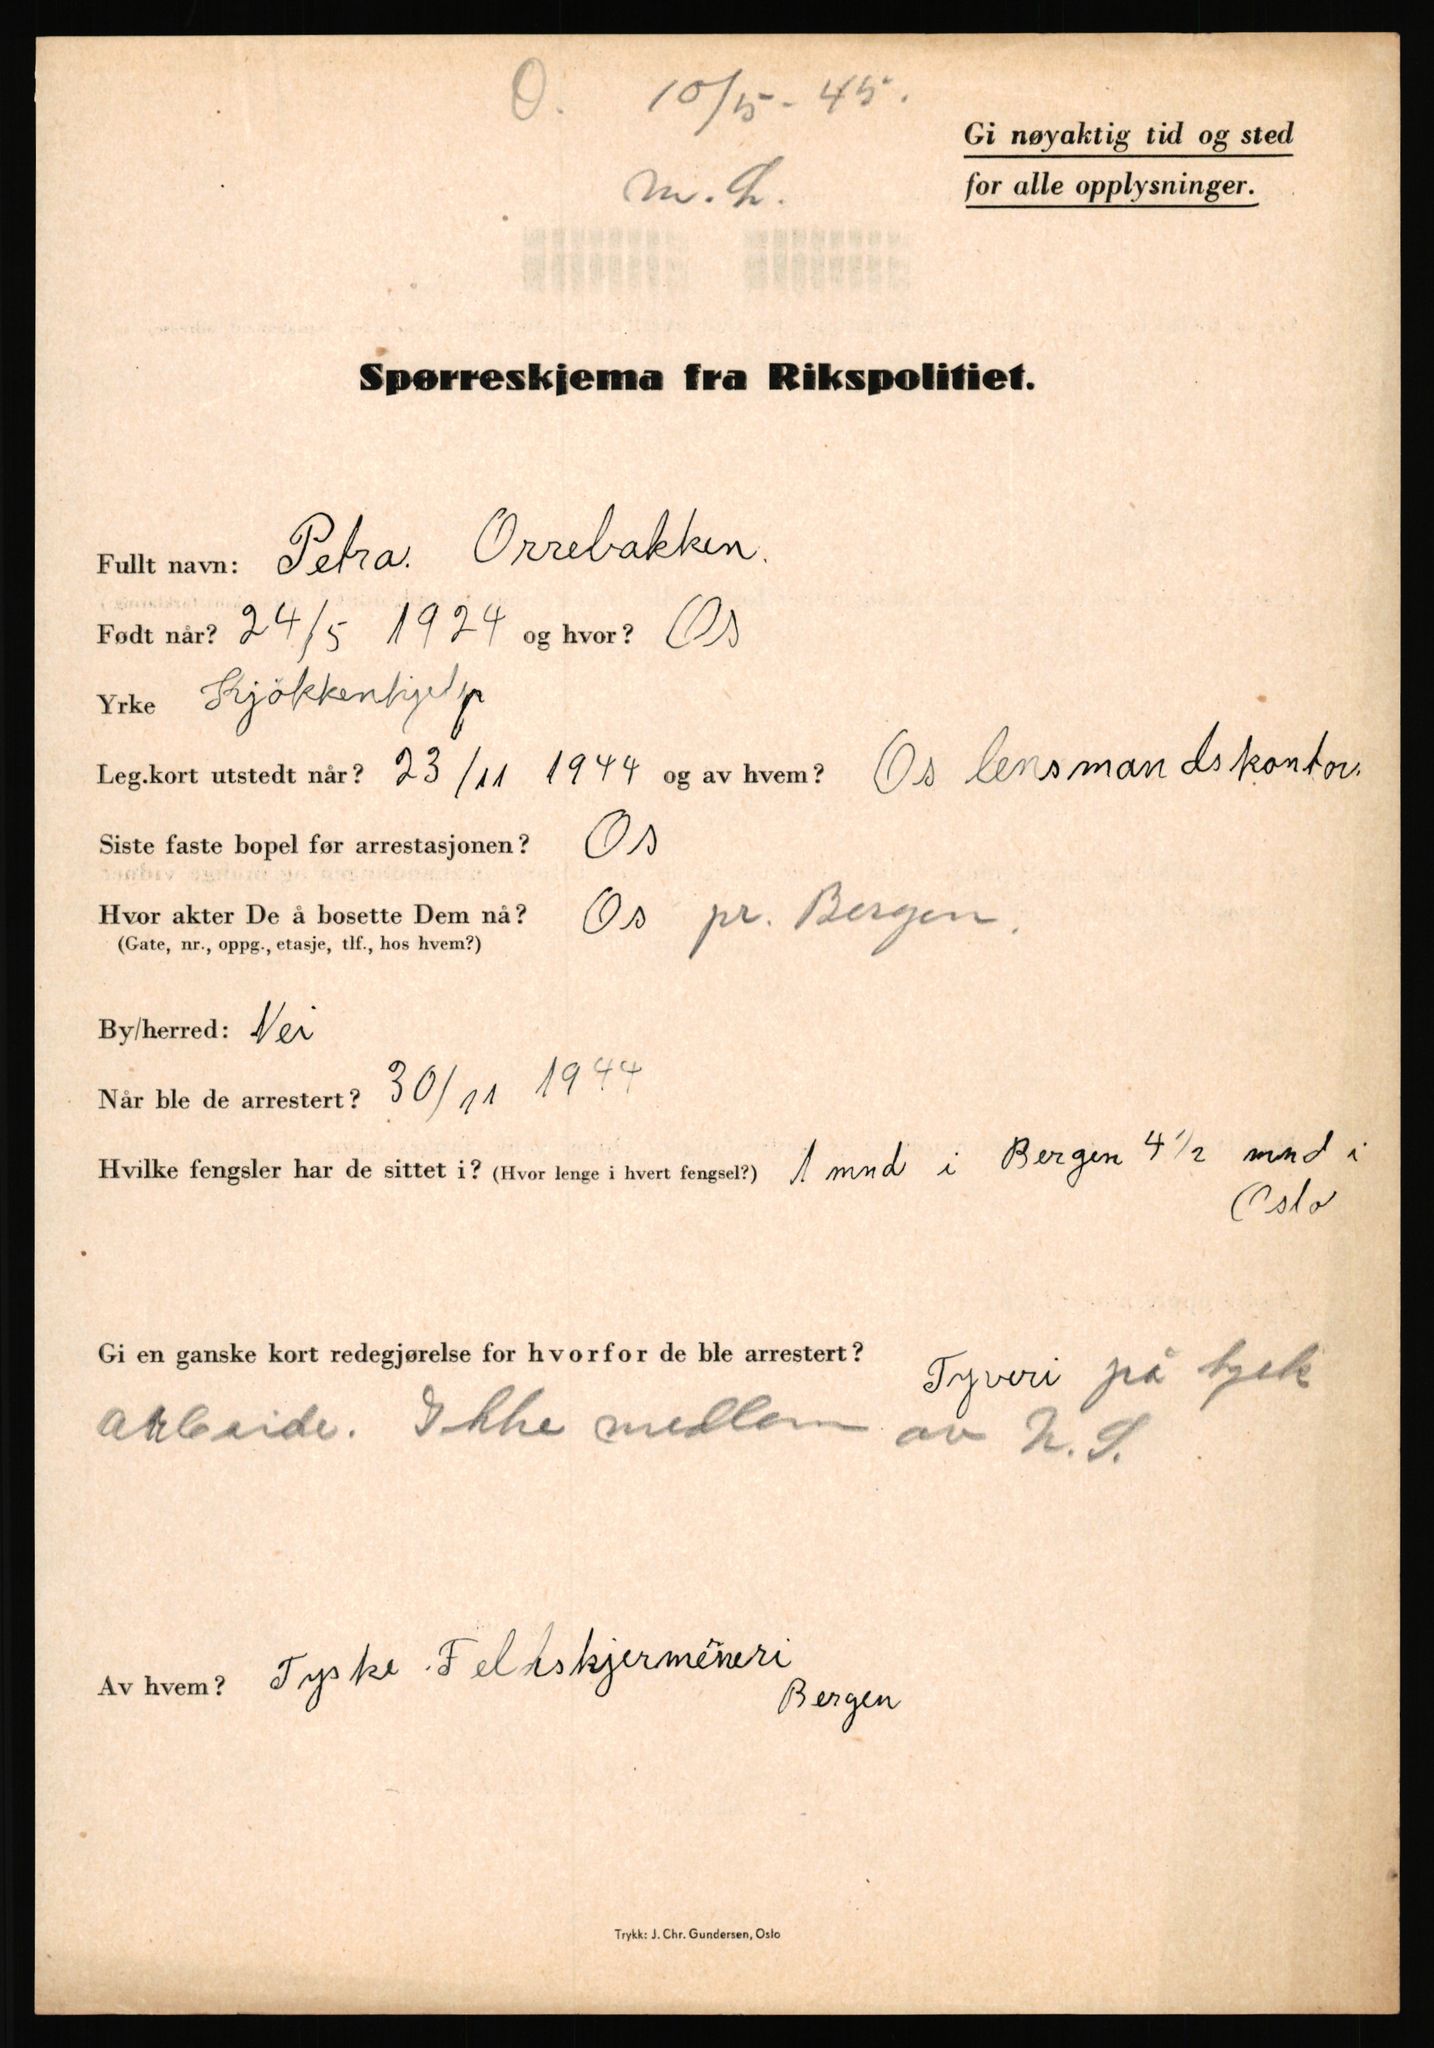 O. 10/5-45.
Gi nøyaktig tid og sted
for alle opplysninger.
m.L.
Spørreskjema fra Rikspolitiet.
Fullt navn: Petra. Orrebakken.
Født når? 24/5 1924 og hvor? Os
Yrke Kjökkenhjelp
Leg.kort utstedt når? 23/11 1944 og av hvem? Os lensmandskontor.
Siste faste bopel før arrestasjonen? Os
Hvor akter De å bosette Dem nå? Os pr. Bergen.
(Gate, nr., oppg., etasje, tlf., hos hvem?)
By/herred: Nei
Når ble de arrestert? 30/11 1944
Hvilke fengsler har de sittet i? (Hvor lenge i hvert fengsel?) 1 mnd i Bergen 4 1/2 mnd i
Oslo
Gi en ganske kort redegjørelse for hvorfor de ble arrestert? Tyveri på tysk
arbeide. Ikke medlem av N.S.
Av hvem? Tyske
Bergen
Trykk: J. Chr. Gundersen, Oslo